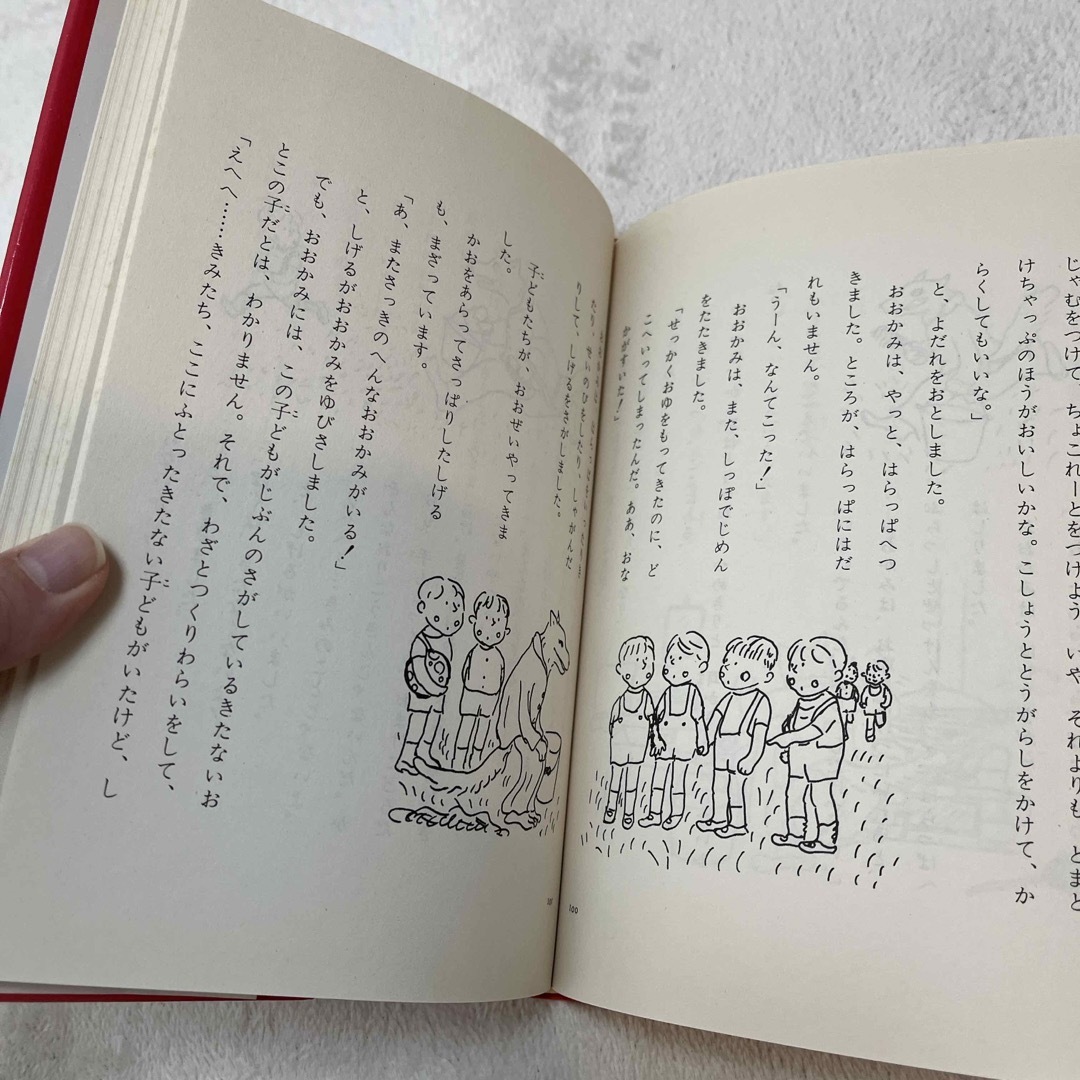 じゃむをつけて、ちょこれーとをつけよう。いや、それよりも、とまと
けちゃっぷのほうがおいしいかな。こしょうととうがらしをかけて、か
らくしてもいいな。」
と、よだれをおとしました。
おおかみは、やっと、はらっぱへつ
きました。ところが、はらっぱにはだ
れもいません。
「うーん、なんてこった！」
おおかみは、また、しっぽでじめん
をたたきました。
「せっかくおゆをもってきたのに、ど
こへいってしまったんだ。ああ、おな
かがすいた！」
100
たり、せいのびをしたり、しゃがんだ
りして、しげるをさがしました。
子どもたちが、おおぜいやってきま
した。
かおをあらってさっぱりしたしげる
も、まざっています。
「あ、またさっきのへんなおおかみがいる！」
と、しげるがおおかみをゆびさしました。
でも、おおかみには、この子どもがじぶんのさがしているきたないお
とこの子だとは、わかりません。それで、わざとつくりわらいをして、
「えへへ……きみたち、ここにふとったきたない子どもがいたけど、し
101